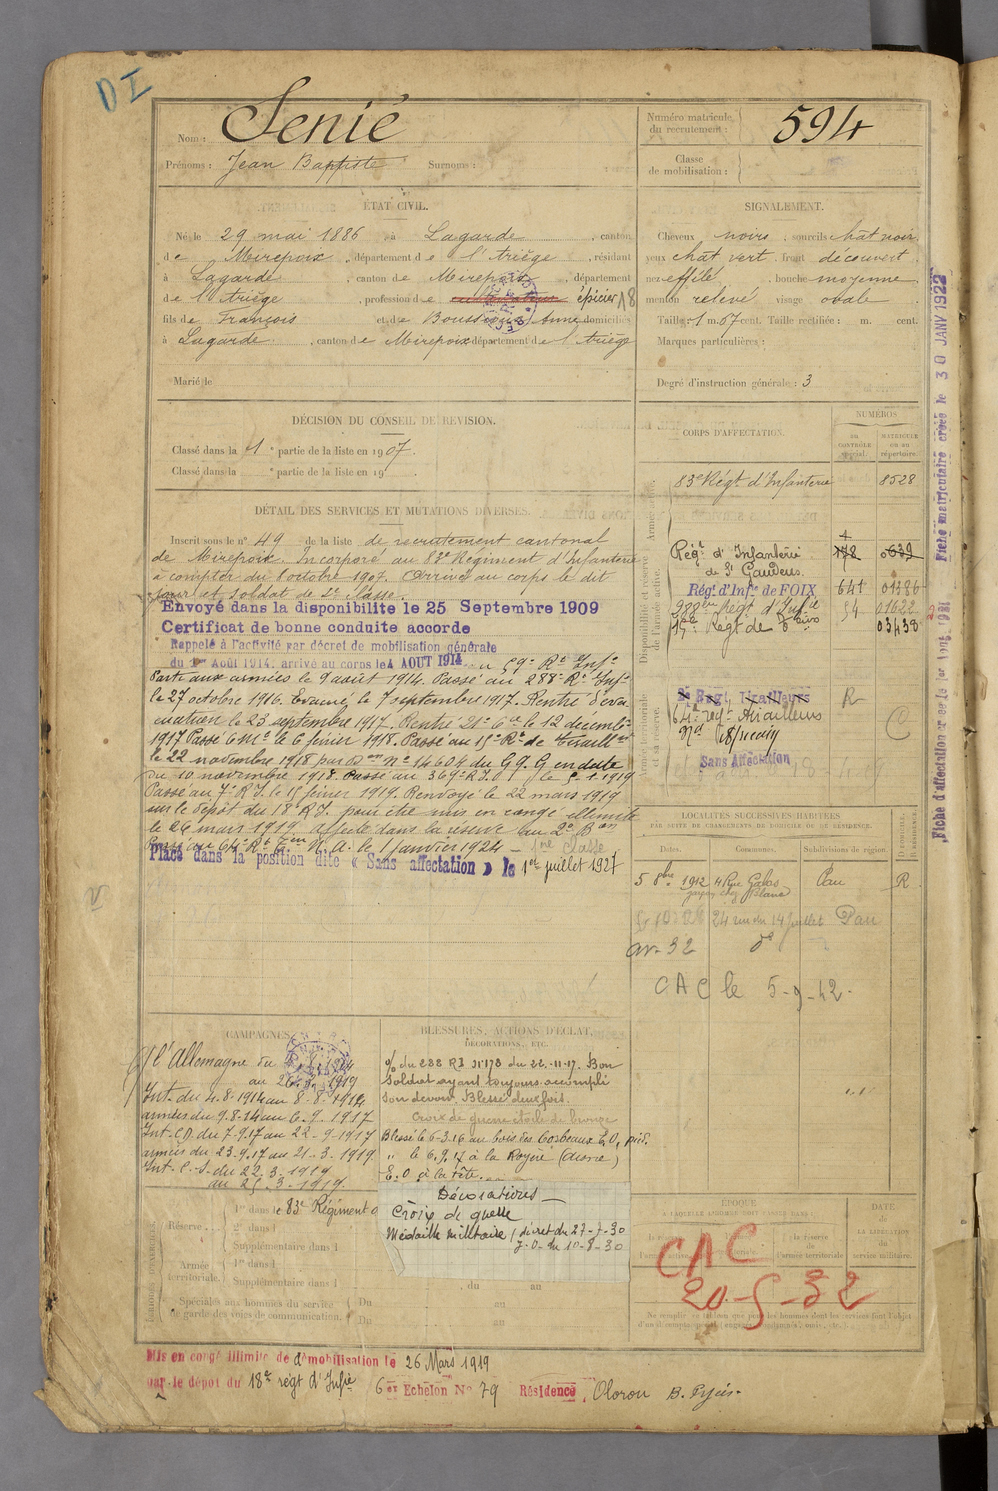 D I
Nom : Senié
Prénoms : Jean Baptiste Surnoms :
Numéro matricule du recrutement : 594
Classe de mobilisation :
ÉTAT CIVIL.
Né le 29 mai 1886 à Lagarde, canton
de Mirepoix, département de l'Ariège, résidant
à Lagarde, canton de Mirepoix, département
de l'Ariège, profession de épicier 18
fils de François et de Anne domiciliés
à Lagarde, canton de Mirepoix département de l'Ariège
Marié le
SIGNALEMENT.
Cheveux noirs, sourcils chât noir,
yeux chât vert, front découvert,
nez effilé, bouche moyenne,
menton relevé, visage ovale
Taille : 1 m. 67 cent. Taille rectifiée : m. cent.
Marques particulières :
Degré d'instruction générale : 3
DÉCISION DU CONSEIL DE REVISION.
Classé dans la 1e partie de la liste en 1907.
Classé dans la e partie de la liste en 19
DÉTAIL DES SERVICES ET MUTATIONS DIVERSES.
Inscrit sous le n° 49 de la liste de recrutement cantonal
de Mirepoix. Incorporé au 83e Régiment d'Infanterie
à compter du 8 octobre 1907. Arrivé au corps le dit
jour et soldat de 2e classe.
Envoyé dans la disponibilite le 25 Septembre 1909
Certificat de bonne conduite accordé
Rappelé à l'activité par décret de mobilisation générale
du 1er Août 1914. arrivé au corps le 4 AOUT 1914 au 59e Rt Infie
Parti aux armées le 9 août 1914. Passé au 288e Rt Infie
le 27 octobre 1916. Evacué le 7 septembre 1917. Rentré d'éva
cuation le 23 septembre 1917. Rentré 21e Cie le 12 décembre
1917 Passé le 6 février 1918. Passé au 15e Rt de Tiraill
le 22 novembre 1918 par n° 14604 du G.Q.G en date
du 10 novembre 1918. Passé au 369e R.I. le 5.1.1919
Passé au 7e R.I. le 15 février 1919. Renvoyé le 22 mars 1919
sur le dépôt du 18e R.I. pour être mis en congé illimité
le 26 mars 1919. Affecté dans la réserve au
le 1 janvier 1924 - 1ère classe
Placé dans la position dite « Sans affectation » le 1er juillet 1927
CORPS D'AFFECTATION.
NUMÉROS
DU CONTRÔLE spécial.
MATRICULE OU DU répertoire.
Armée active.
83e Régt d'Infanterie 8528
Disponibilité et réserve de l'armée active.
Régt d'Infanterie 178 0639
de St Gaudens.
Régt d'Infie de FOIX 641 01386
288ème Régt d'Infie 54 01622
15e Régt de 03438
Armée territoriale et sa réserve.
Regt Tirailleurs R
Regt Tirailleurs
Sans Affectation
C
LOCALITÉS SUCCESSIVES HABITÉES
PAR SUITE DE CHANGEMENTS DE DOMICILE OU DE RÉSIDENCE.
Dates. Communes. Subdivisions de région. D DOMICILE. R RÉSIDENCE.
5 8bre 1912 4 Rue Pau R
garçon chez Blanc
24 rue du 14 juillet Pau
av- 32 de
CAC le 5-9-42-
CAMPAGNES.
C/ l'Allemagne du
au 1919
Int. du 4-8-1914 au 8-8-1914
armées du 9-8-14 au 6.9.1917
Int. C.D. du 7-9.17 au 22-9-1917
armées du 23-9.17 au 21-3-1919
Int. C.S. du 22.3.1919
au 25.3.1919.
BLESSURES, ACTIONS D'ÉCLAT,
DÉCORATIONS, ETC.
O/ du 288 RI N° 178 du 22-11-17. Bon
soldat ayant toujours accompli
son devoir. Blessé deux fois.
Croix de guerre étoile de bronze
Blessé le 6-3.16 au bois des Corbeaux E.O, pied.
" le 6.9.17 à la Royère (Aisne)
E.O à la tête.
Décorations
Croix de guerre
Médaille militaire (décret du 27-7-30
J.O. du 10-8-30
1er dans le 83e Régiment d
Réserve 2e dans l
Supplémentaire dans l
Armée territoriale. 1er dans l
Supplémentaire dans l du au
Spéciales aux hommes du service de garde des voies de communication. Du au
Du au
ÉPOQUE
À LAQUELLE L'HOMME DOIT PASSER DANS :
la réserve de l'armée territoriale
DATE
de LA LIBÉRATION du service militaire.
CAC
20-5-32
Mis en congé illimité de démobilisation le 26 Mars 1919
par le dépot du 18e régt d'Infie 6e Echelon N° 79 Résidence Oloron B. Pyr
Fiche matriculaire créée le 30 JANV 1922